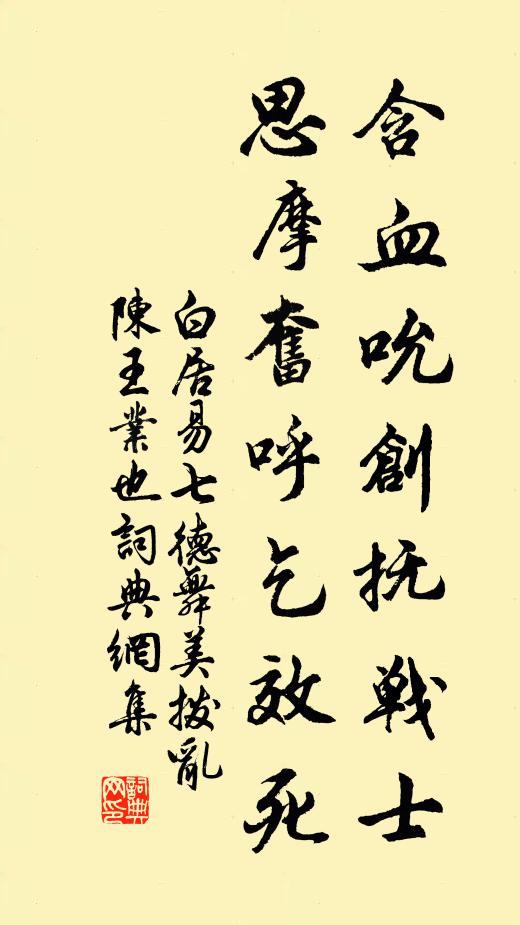 含血吮創抚戦士
思摩奮呼乞效死
白居易七德舞美拨亂
陳王業也詞典網集
詞典网印